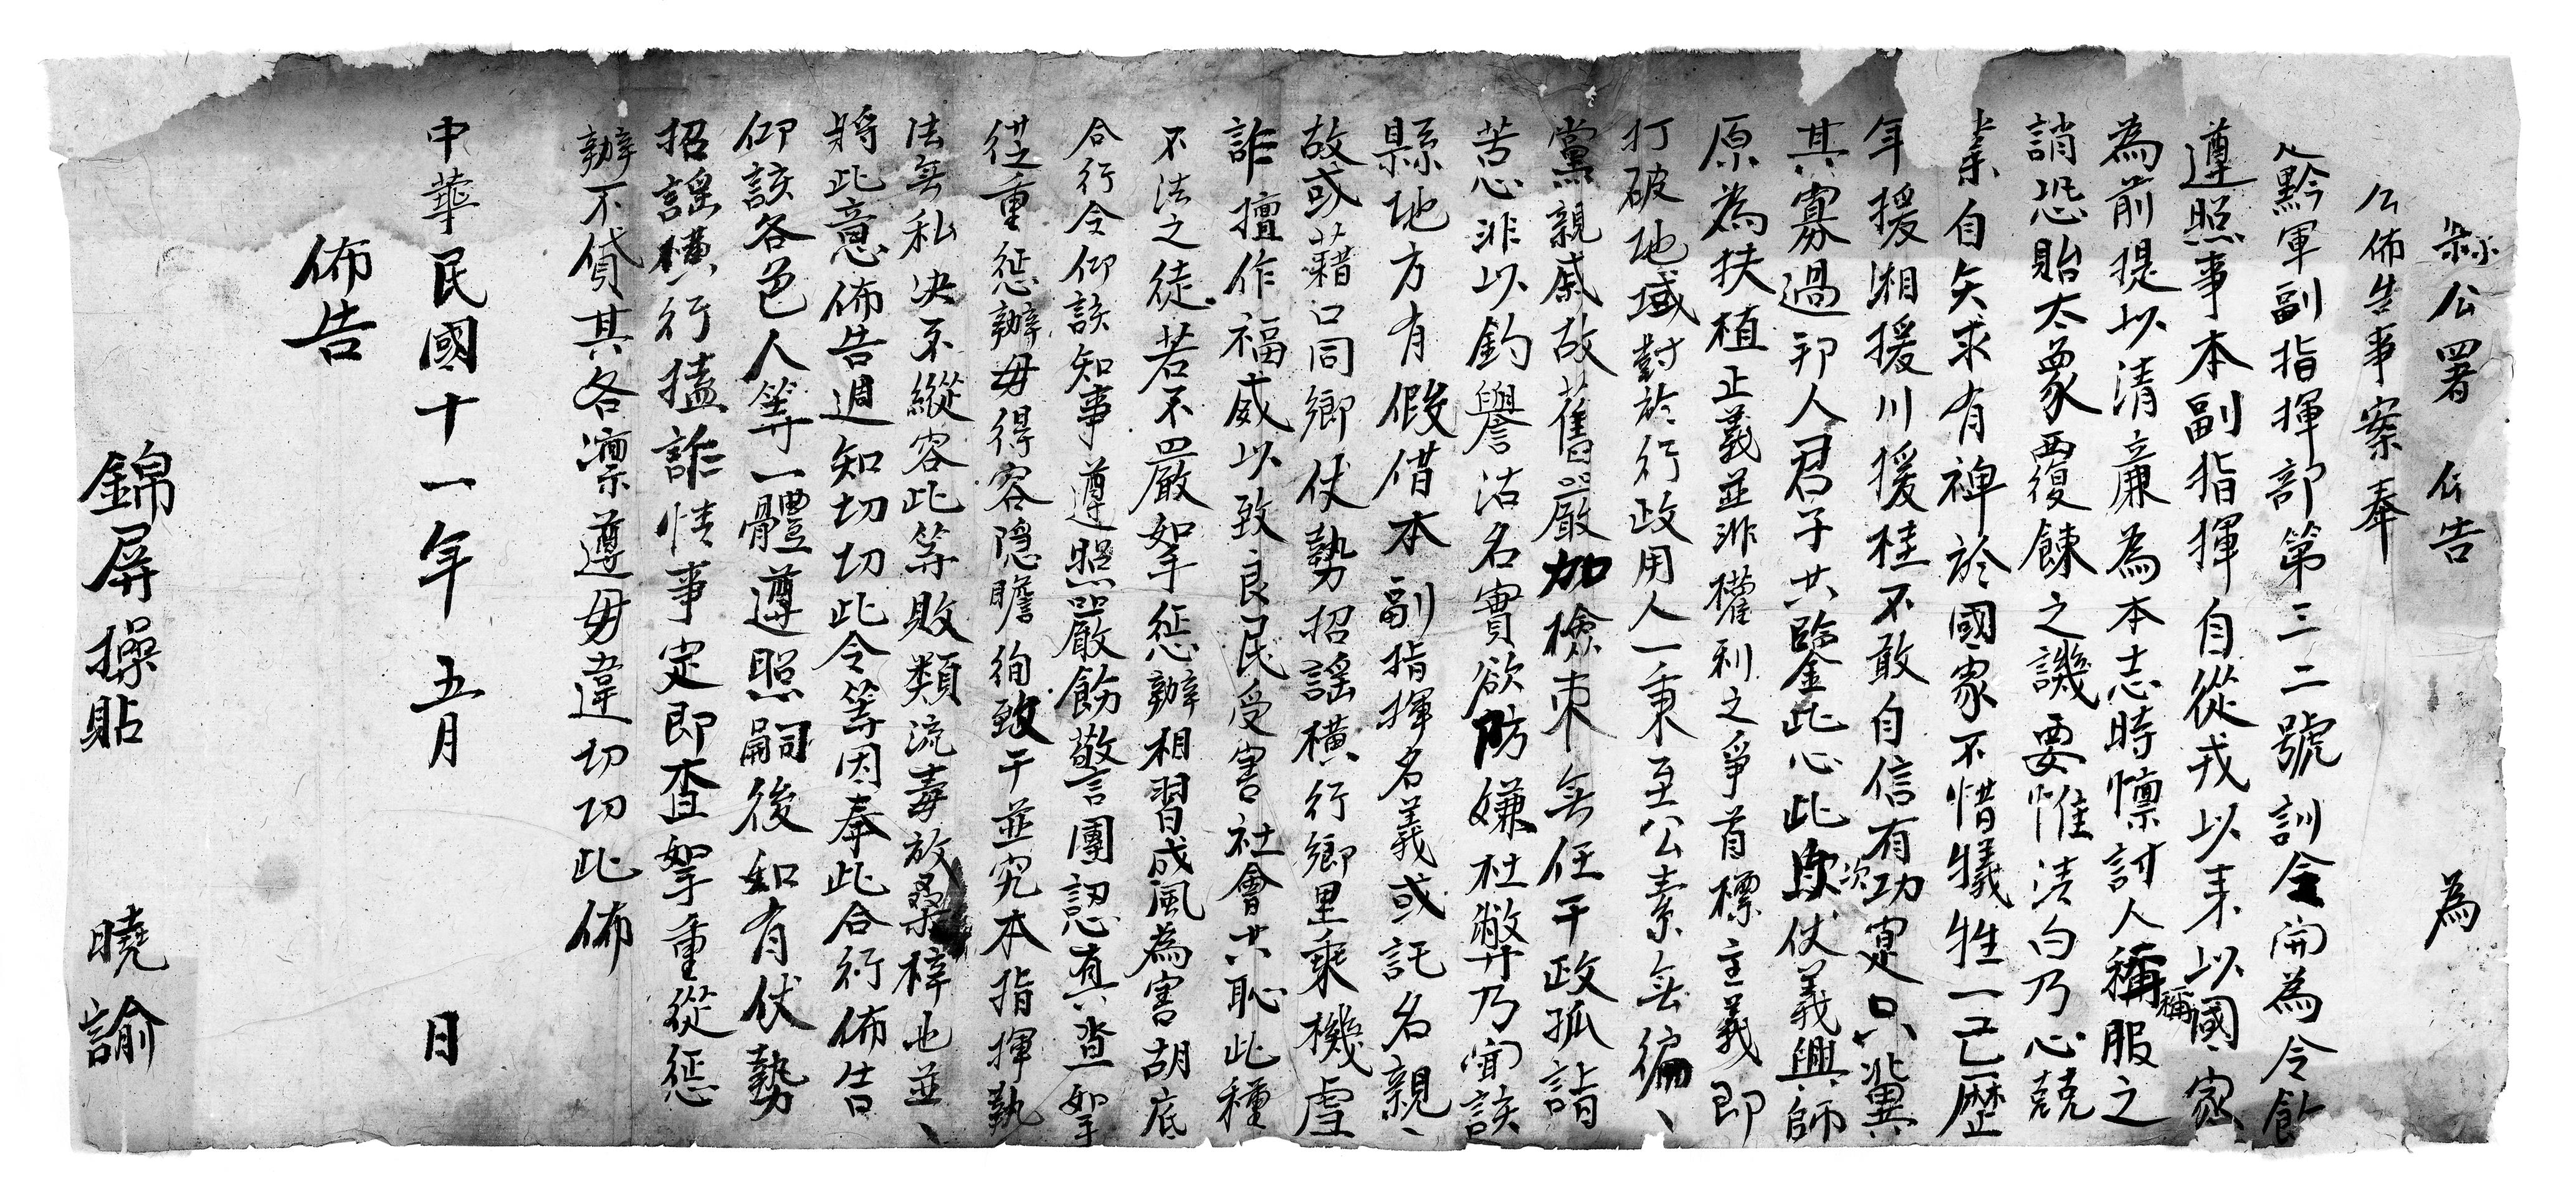 縣公署 佈告 為
公佈告事案奉
黔軍副指揮部第三二號訓令開為令飭
遵照事本副指揮自從戎以来以國家
為前提以清廉為本志時懔討人稱稱服之
誚恐貽太象覆餗之譏要惟清白乃心兢
業自矢求有裨於國家不惜犧牲一己歷
年援湘援川援桂不敢自信有功寔只冀
其寡過邦人君子共臨鑒此心此次次仗義興師
原為扶植正義並非權利之爭首標主義即
打破地域對於行政用人一秉至公素無徧、
黨親戚故舊嚴加檢束無任干政孤詣
苦心非以釣譽沽名實欲防嫌杜弊乃聞該
縣地方有假借本副指揮名義或託名親、
故或藉口同鄉仗勢招謠橫行鄉里乘機虐
詐擅作福威以致良民受害社會共恥此種
不法之徒若不嚴拏懲辦相習成風為害胡底
合行令仰該知事遵照嚴飭警團認真查拏
從重懲辦毋得容隱瞻徇致干並究本指揮執
法無私决不縱容此等敗類流毒放桑梓也並、
將此意佈告週知切切此令等因奉此合行佈告
仰該各色人等一體遵照嗣後如有仗勢
招謠橫行搕詐情事定即查拏重從懲
辦不貸其各凜遵毋違切切此佈
中華民國十一年 五月 日
佈告
錦屏操貼 曉諭